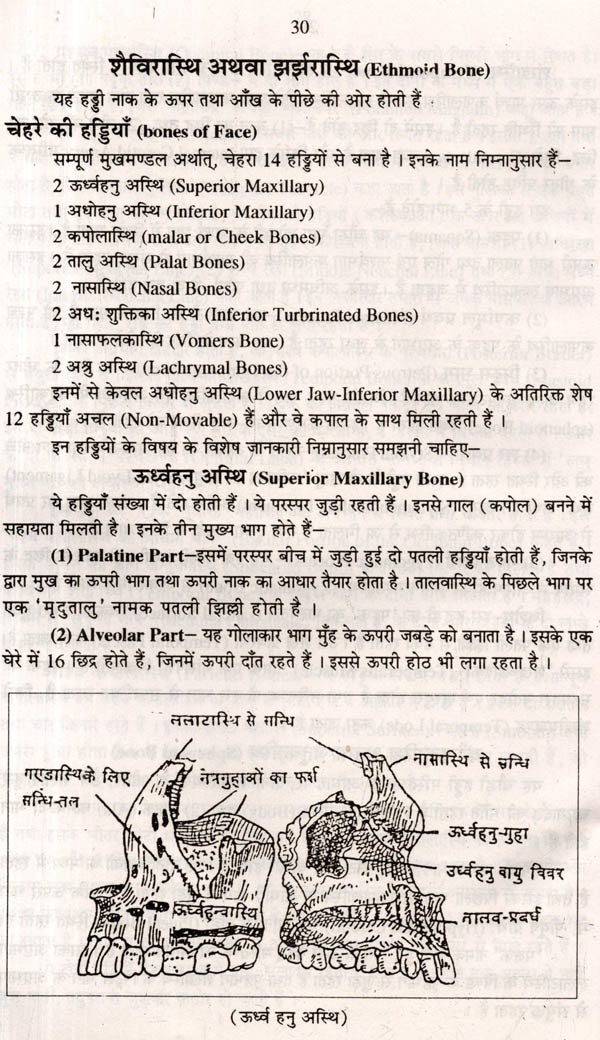 30
शैविरास्थि अथवा झर्झरास्थि (Ethmoid Bone)
यह हड्डी नाक के ऊपर तथा आँख के पीछे की ओर होती हैं ।
चेहरे की हड्डियाँ (bones of Face)
सम्पूर्ण मुखमण्डल अर्थात्, चेहरा 14 हड्डियों से बना है । इनके नाम निम्नानुसार हैं–
2 ऊर्ध्वहनु अस्थि (Superior Maxillary)
1 अधोहनु अस्थि (Inferior Maxillary)
2 कपोलास्थि (malar or Cheek Bones)
2 तालु अस्थि (Palat Bones)
2 नासास्थि (Nasal Bones)
2 अधः शुक्तिका अस्थि (Inferior Turbinrated Bones)
1 नासाफलकास्थि (Vomers Bone)
2 अश्रु अस्थि (Lachrymal Bones)
इनमें से केवल अधोहनु अस्थि (Lower Jaw-Inferior Maxillary) के अतिरिक्त शेष
12 हड्डियाँ अचल (Non-Movable) हैं और वे कपाल के साथ मिली रहती हैं ।
इन हड्डियों के विषय के विशेष जानकारी निम्नानुसार समझनी चाहिए–
ऊर्ध्वहनु अस्थि (Superior Maxillary Bone)
ये हड्डियाँ संख्या में दो होती हैं । ये परस्पर जुड़ी रहती हैं । इनसे गाल (कपोल) बनने में
सहायता मिलती है । इनके तीन मुख्य भाग होते हैं–
(1) Palatine Part–इसमें परस्पर बीच में जुड़ी हुई दो पतली हड्डियाँ होती हैं, जिनके
द्वारा मुख का ऊपरी भाग तथा ऊपरी नाक का आधार तैयार होता है । तालवास्थि के पिछले भाग पर
एक ‘मृदुतालु’ नामक पतली झिल्ली होती है ।
(2) Alveolar Part– यह गोलाकार भाग मुँह के ऊपरी जबड़े को बनाता है । इसके एक
घेरे में 16 छिद्र होते हैं, जिनमें ऊपरी दाँत रहते हैं । इससे ऊपरी होठ भी लगा रहता है ।
ललाटास्थि से सन्धि
गण्डास्थि के लिए
सन्धि-तल
नेत्रगुहाओं का फर्श
नासास्थि से सन्धि
ऊर्ध्वहनु-गुहा
उर्ध्वहनु वायु विवर
तालव-प्रदर्ध
(ऊर्ध्व हनु अस्थि)